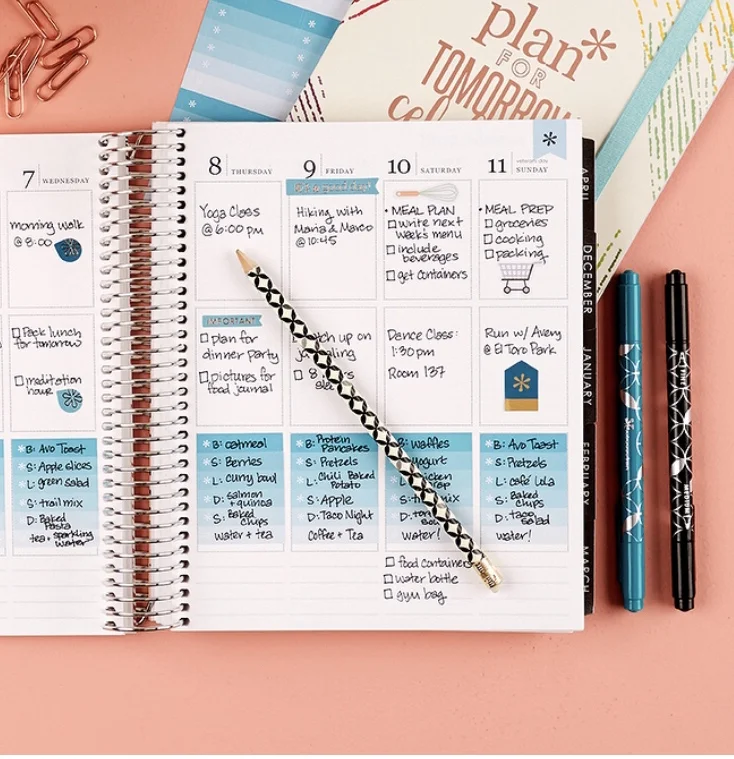 plan*
FOR
TOMORROW
7 WEDNESDAY
morning walk
@ 8:00
☐ Pack lunch
for tomorrow
☐ meditation
hour
* B: Avo Toast
S: Apple slices
L: green salad
S: trail mix
D: Baked
Pasta
tea + sparkling
water
8 THURSDAY
Yoga Class
@ 6:00 pm
IMPORTANT
☐ plan for
dinner party
☐ pictures for
food journal
* B: oatmeal
S: Berries
L: curry bowl
D: salmon
+ quinoa
S: Baked
chips
water + tea
9 FRIDAY
Hiking with
Maria & Marco
@ 10:45
up on
☐ 8
* B: Protein
Pancakes
S: Pretzels
L: Chili Baked
Potato
S: Apple
D: Taco Night
Coffee + Tea
10 SATURDAY
• MEAL PLAN
☐ write next
week's menu
☐ include
beverages
☐ get containers
Dance Class:
1:30 pm
Room 137
B: Waffles
yogurt
L:
S: mix
D:
water!
☐ food containers
☐ water bottle
☐ gym bag
veteran's day
11 SUNDAY
• MEAL PREP
☐ groceries
☐ cooking
☐ packing
Run w/ Avery
@ El Toro Park
* B: Avo Toast
S: Pretzels
L: café Lola
S: Baked
chips
D: taco
salad
water!
APRIL
DECEMBER
JANUARY
FEBRUARY
MARCH